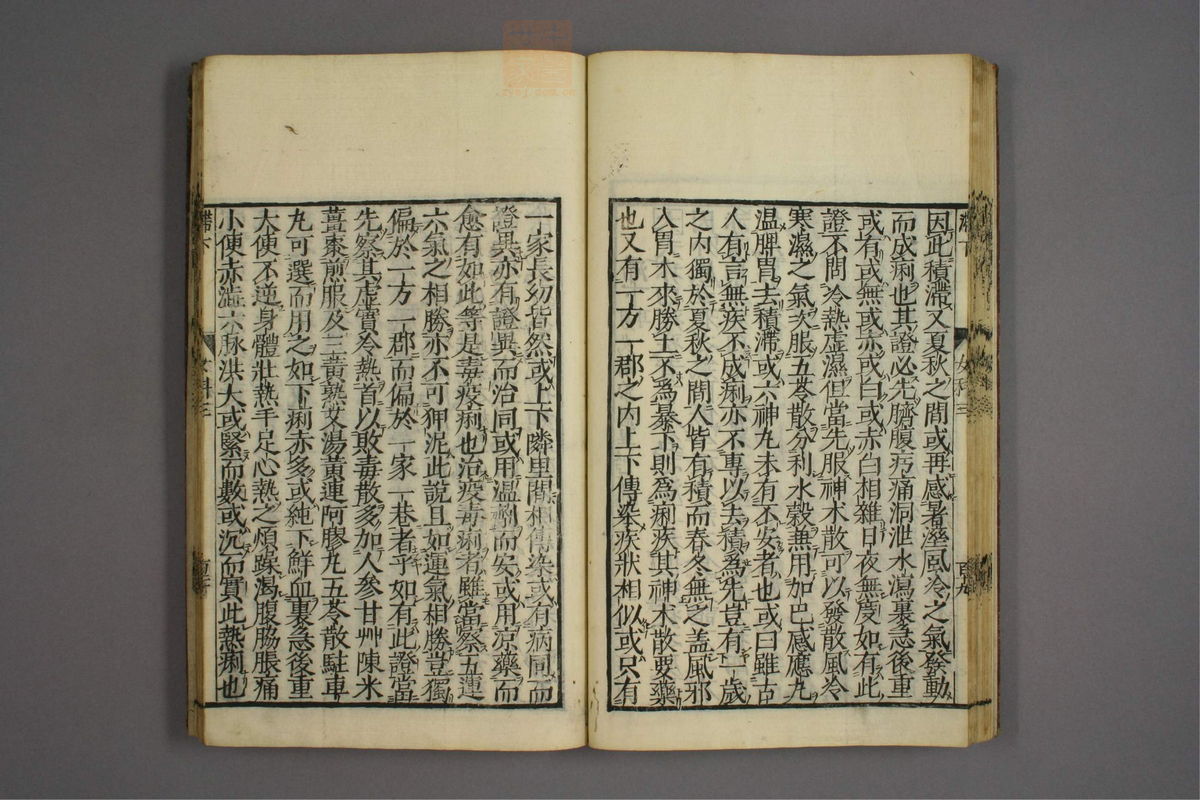 因此積滯又夏秋之間或再感暑溼風冷之氣發動
而成痢也其證必先臍腹疞痛洞泄水瀉裏急後重
或有或無或赤或白或赤白相雜日夜無度如有此
證不問冷熱虛濕但當先服神术散可以發散風冷
寒濕之氣次服五苓散分利水穀無用加巴感應丸
温脾胃去積滯或六神丸未有不安者也或曰雖古
人有言無疾不成痢亦不專以去積為先豈有一歲
之内獨於夏秋之間人皆有積而春冬無之盖風邪
入胃木來勝土不爲暴下則為痢疾其神术散要藥
也又有一方一郡之内上下傳染疾狀相似或只有
一家長幼皆然或上下隣里間相傳染或有病同而
證異亦有證異而治同或用温劑而安或用凉藥而
愈有如此等是毒疫痢也治疫毒痢者雖當察五運
六氣之相勝亦不可狎泥此說且如運氣相勝豈獨
偏於一方一郡而偏於一家一巷者乎如有此證當
先察其虛實冷熱首以敗毒散多加人參甘艸陳米
薑棗煎服及三黄熟艾湯黄連阿膠丸五苓散駐車
丸可選而用之如下痢赤多或純下鮮血裏急後重
大便不逆身體壯熱手足心熱之煩躁渴腹脇脹痛
小便亦澁六脉洪大或緊而數或沉而實此熱痢也
女科三
女科三